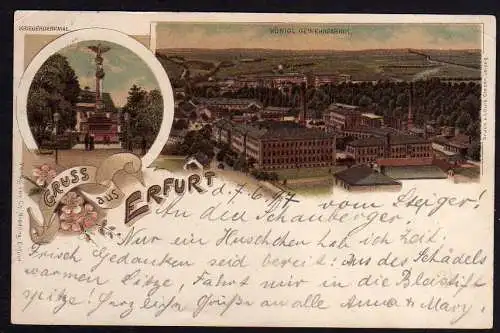 KRIEGERDENKMAL
KÖNIGL. GEWEHRFABRIK.
GRUSS
aus
ERFURT
d. 7. 6. 97
vom Steiger!
An den Schauberger!
Nur ein Huschchen hab ich Zeit
Frisch Gedanken seid bereit: Aus des Schädels
warmen Sitze, Fahrt mir in die Bleistift
spitze! Herzliche Grüße an alle Anna & Mary.